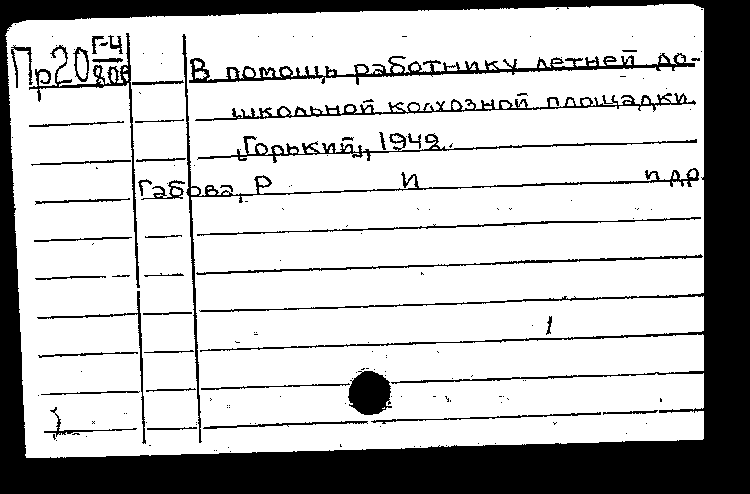 Пр20 Г-4
800 В помощь работнику летней до-
школьной колхозной площадки.
„Горький„, 1942.
Габова, Р И и др.
1